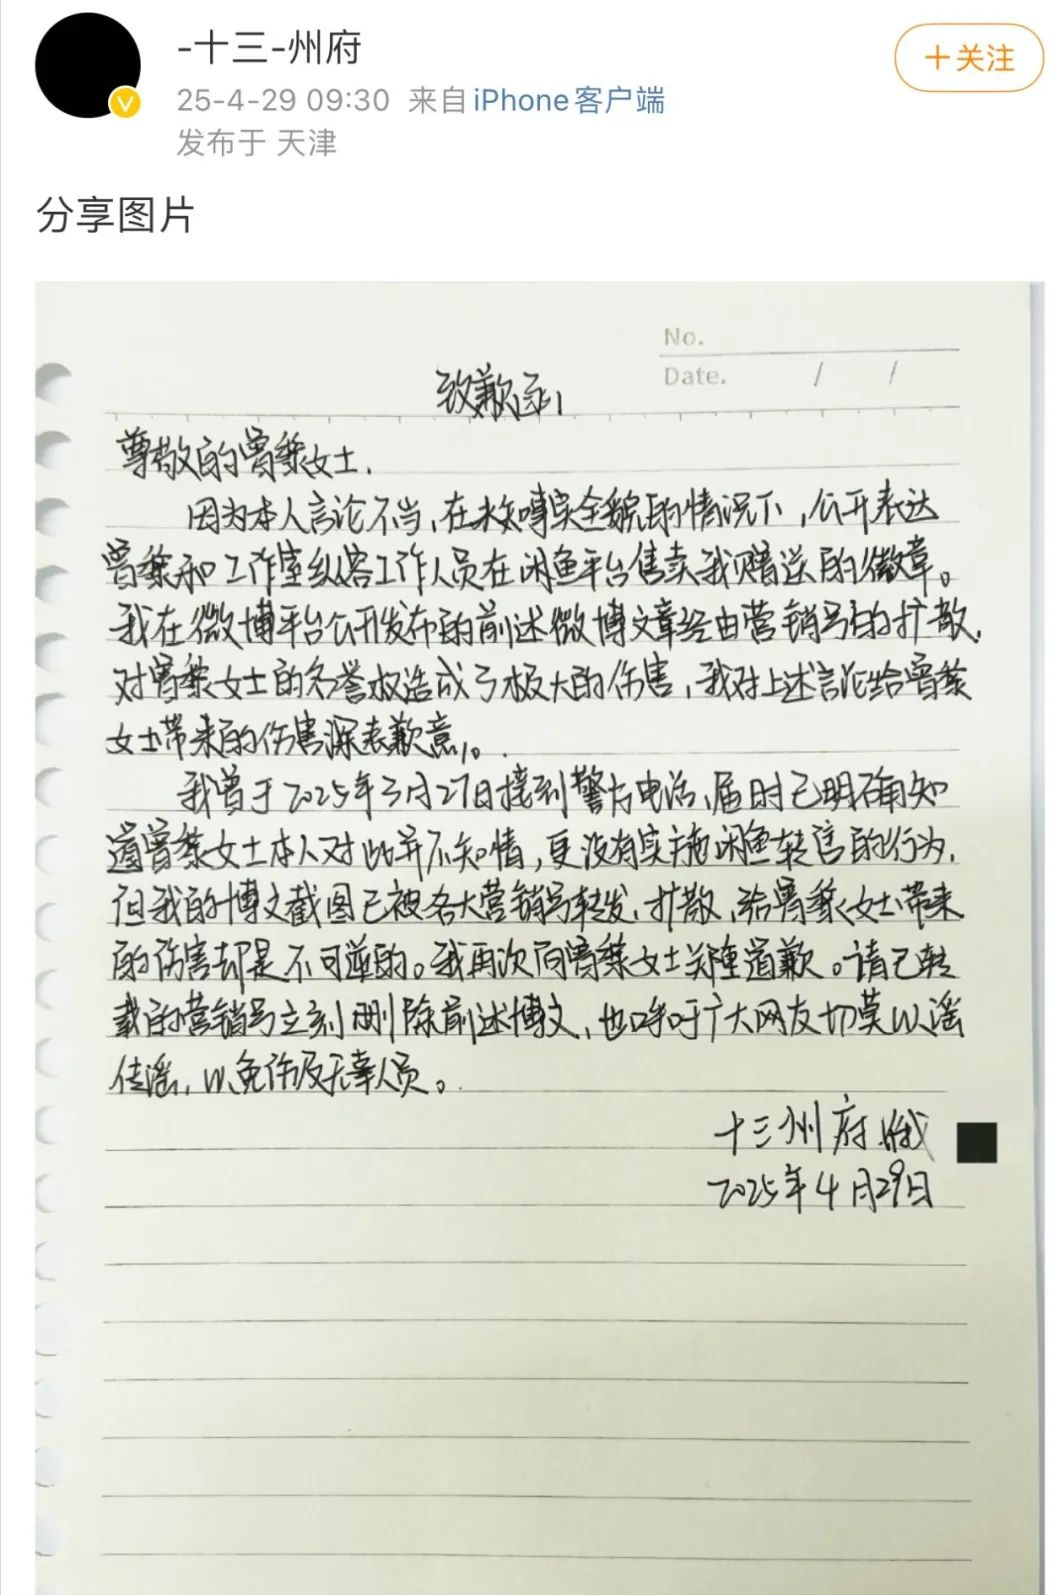 -十三-州府
+关注
25-4-29 09:30 来自 iPhone客户端
发布于 天津
分享图片
No.
Date. / /
致歉函
尊敬的曾黎女士,
因为本人言论不当,在未知事实全貌的情况下,公开表达
曾黎和工作室纵容工作人员在闲鱼平台售卖我赠送的徽章。
我在微博平台公开发布的前述微博文章经由营销号的扩散,
对曾黎女士的名誉权造成了极大的伤害,我对上述言论给曾黎
女士带来的伤害深表歉意。
我曾于2025年3月27日接到警方电话,届时已明确知
道曾黎女士本人对此并不知情,更没有实施闲鱼转售的行为,
但我的博文截图已被各大营销号转发,扩散,给曾黎女士带来
的伤害却是不可逆的。我再次向曾黎女士郑重道歉。请已转
载的营销号立刻删除前述博文,也呼吁广大网友切莫以谣
传谣,以免伤及无辜人员。
十三州府
2025年4月29日